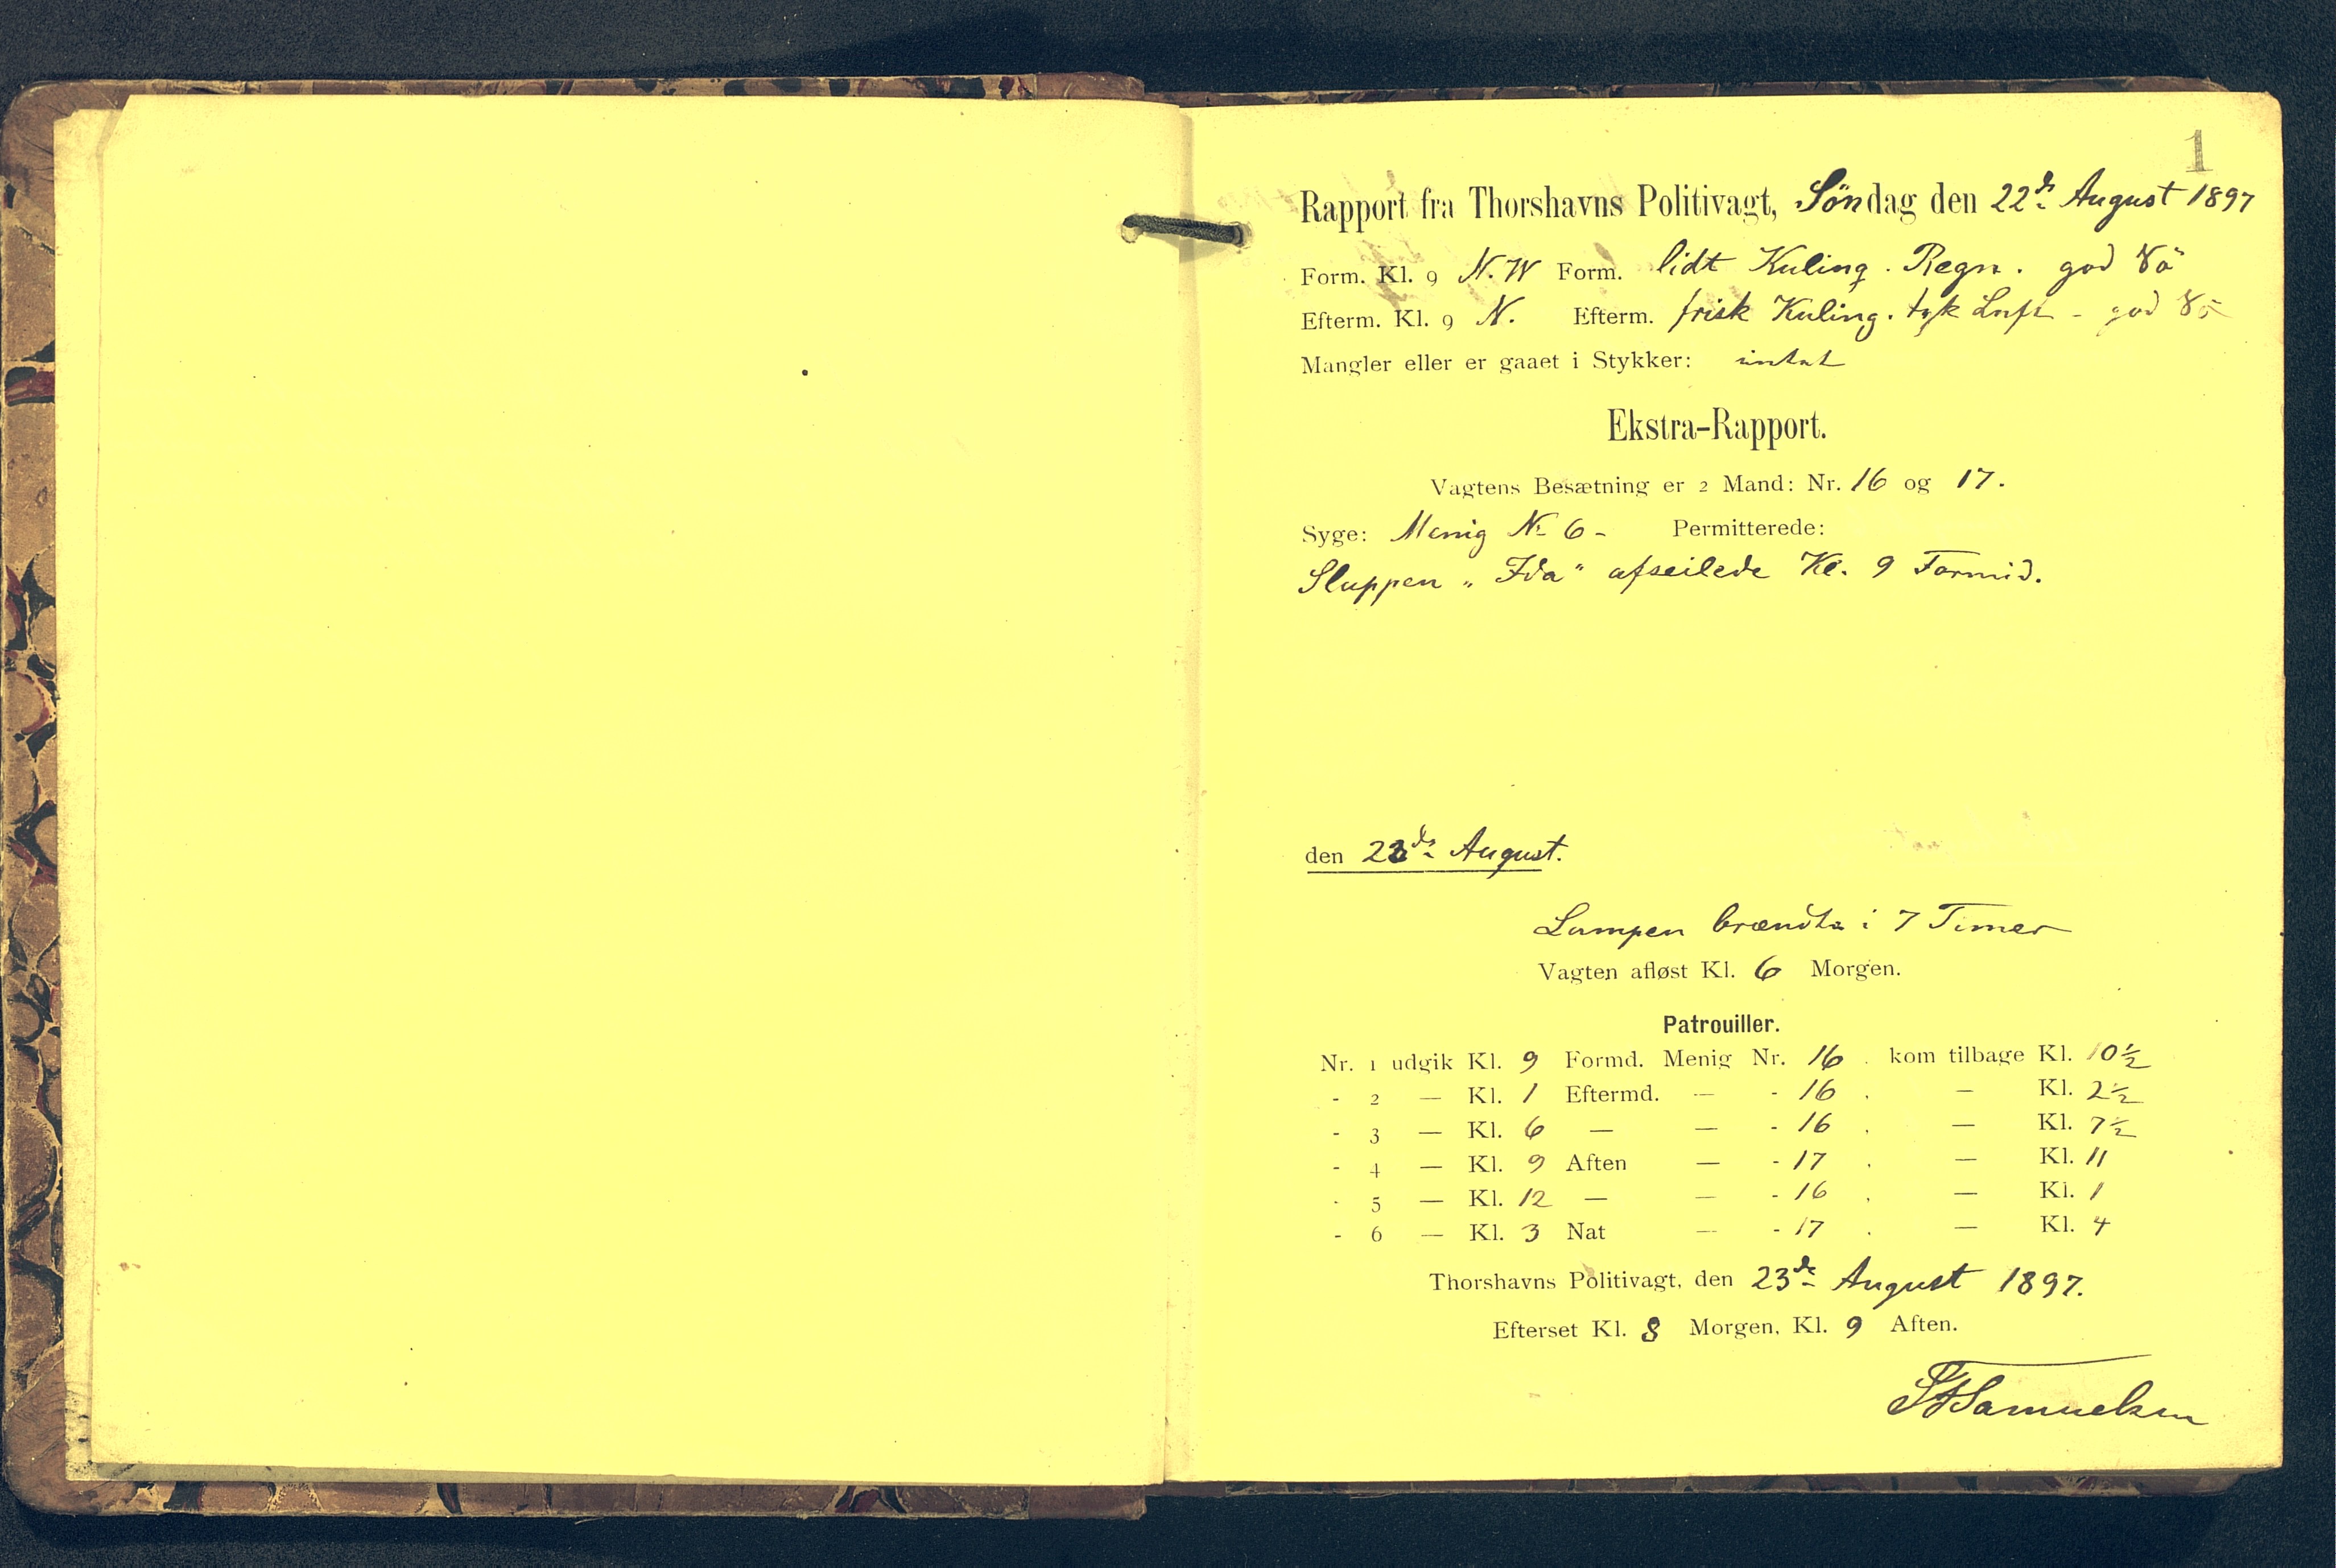 1
Rapport fra Thorshavns Politivagt, Søndag den 22de August 1897
Form. Kl. 9 N.W Form. lidt Kuling. Regn. god Sö
Efterm. Kl. 9 N. Efterm. frisk Kuling. tyk Luft - god Sö
Mangler eller er gaaet i Stykker: intet
Ekstra-Rapport.
Vagtens Besætning er 2 Mand: Nr. 16 og 17.
Syge: Menig No 6 - Permitterede:
Sluppen „Ida" afseilede Kl. 9 Formid.
den 23de August.
Lampen brændte i 7 Timer
Vagten afløst Kl. 6 Morgen.
Patrouiller.
Nr. 1 udgik Kl. 9 Formd. Menig Nr. 16 . kom tilbage Kl. 10½
- 2 — Kl. 1 Eftermd. — - 16 . — Kl. 2½
- 3 — Kl. 6 — — - 16 . — Kl. 7½
- 4 — Kl. 9 Aften — - 17 . — Kl. 11
- 5 — Kl. 12 — — - 16 . — Kl. 1
- 6 — Kl. 3 Nat — - 17 . — Kl. 4
Thorshavns Politivagt, den 23de August 1897.
Efterset Kl. 8 Morgen, Kl. 9 Aften.
Samuelsen